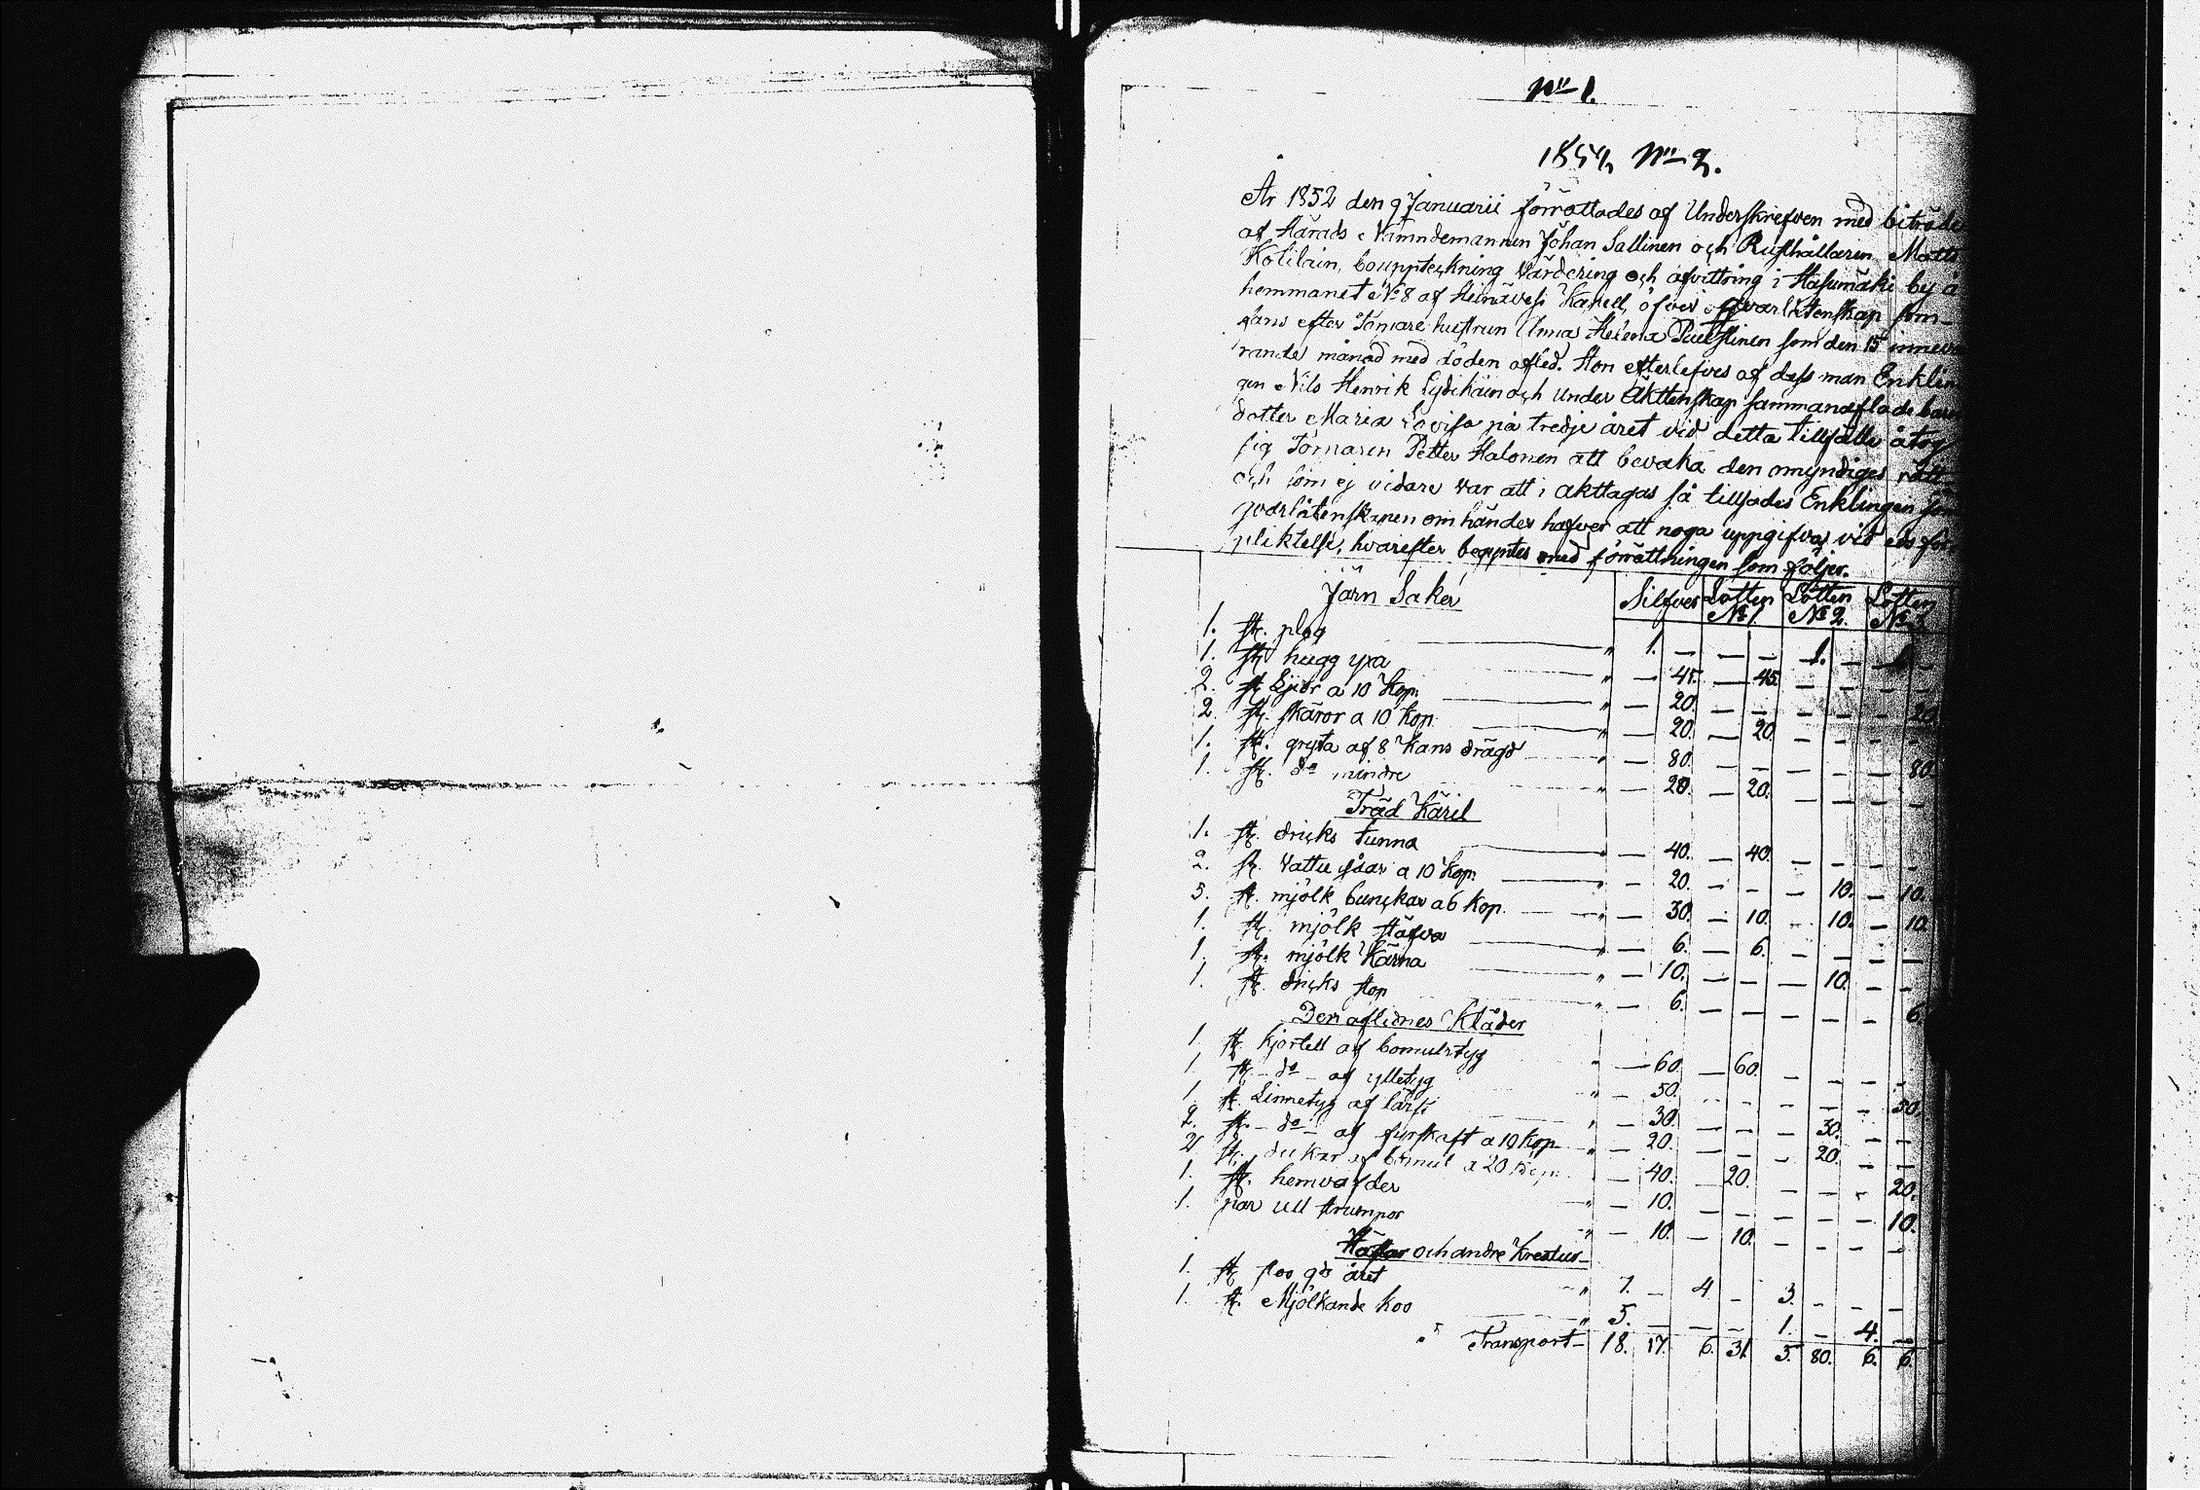 No 1.
1852 No 2.
År 1852 den 9 Januarii förrättades af Underskrefven med biträde
af Härads Nämndemannen Johan Sallinen och Rusthållaren Matts
Kolilain, bouppteckning värdering och afvittring i Hasumäki by å
hemmanet No 8 af Heinävesi Kapell, öfver qvarlåtenskap som
fans efter Tornare hustrun Anna Helena Puustinen som den 15 inneva
rande månad med döden afled. Hon efterlefves af dess man Enklin
gen Nils Henrik Lydikäin och under Äktenskap sammanaflade barn
dotter Maria Lovisa på tredje året vid detta tillfälle åtog
sig Tornaren Petter Halonen att bevaka den omyndiges rätt
och som ej vidare var att i akttagas så tillsades Enklingen som
qvarlåtenskapen om händer hafver att noga uppgifva vid eds för
pliktelse, hvarefter begyntes med förrättningen som följer.
Järn Saker Silfver Lotten No 1. Lotten No 2. Lotten No 3.
1. st. plog " 1. — — — 1. — — —
1. st. hugg yxa " — 45. — 45. — — — —
2. st. Ljior a 10 Kop. " — 20. — — — — — 20.
2. st. skäror a 10 Kop. " — 20. — 20. — — — —
1. st. gryta af 8 Kans drägd " — 80. — — — — — 80.
1. st. do mindre " — 20. — 20. — — — —
Träd Käril
1. st. dricks tunna " — 40. — 40. — — — —
2. st. vattu såar a 10 Kop. " — 20. — — — 10. — 10.
5. st. mjölk bunckar a 6 Kop. " — 30. — 10. — 10. — 10.
1. st. mjölk stäfva " — 6. — 6. — — — —
1. st. mjölk Kärna " — 10. — — — 10. — —
1. st. dricks stop " — 6. — — — — — 6.
Den aflidnes Kläder
1. st. kjortell af bomulstyg " — 60. — 60. — — — —
1. st. — do — af ylletyg " — 50. — — — — — 50.
1. st. Linnetyg af lärft " — 30. — — — 30. — —
2. st. — do — af fyrskaft a 10 Kop " — 20. — — — 20. — —
2 st. dukar af bomul a 20 Kop. — 40. — 20. — — — 20.
1. st. hemva der " — 10. — — — — — 10.
1. par ull strumpor " — 10. — 10. — — — —
Hästar och andre Kreatur
1. st. stoo 9de året " 7. — 4 — 3. — — —
1. st. Mjölkande koo " 5. — — — 1. — 4. —
Transport — 18. 17. 6. 31. 5. 80. 6. 6.